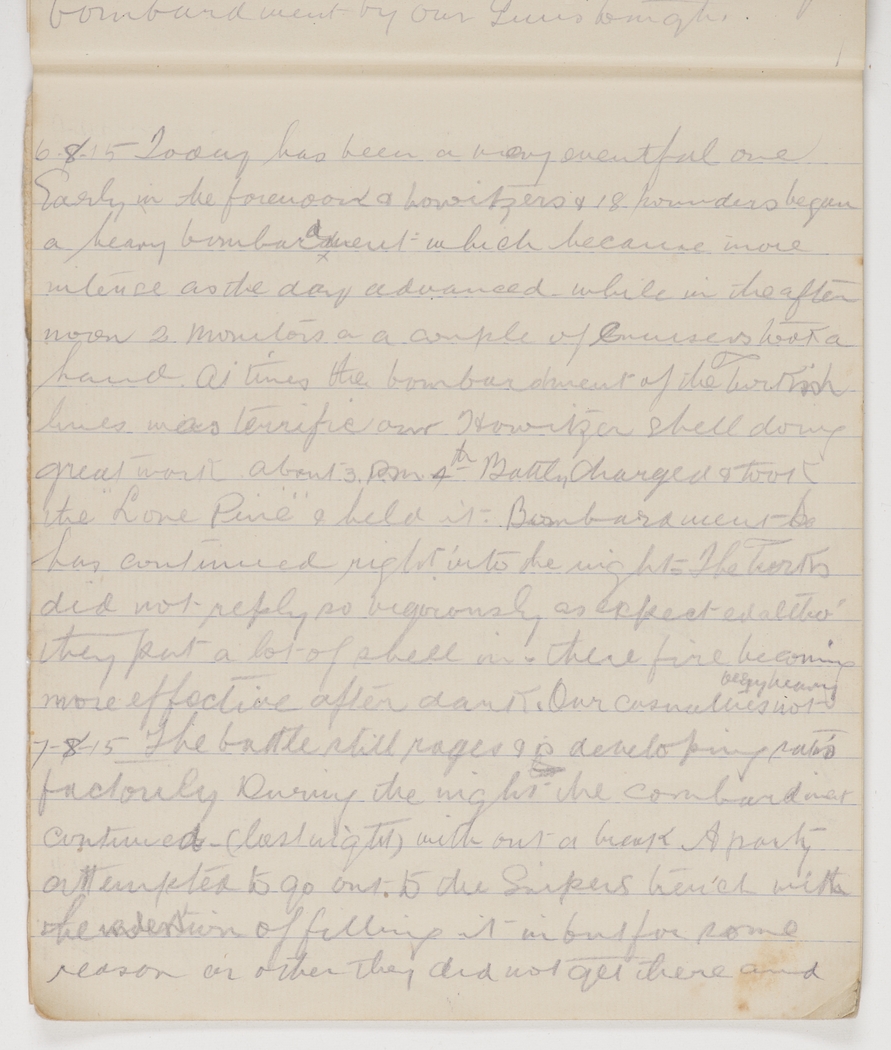 bombardment by our Guns tonight.
6-8-15 Today has been a very eventful one
Early in the forenoon & howitzers & 18 pounders began
a heavy bombardment which became more
intense as the day advanced - while in the after
noon 2 Monitors & a couple of Cruisers took a
hand. At times the bombardment of the Turkish
lines was terrific our Howitzer shell doing
great work about 3. P.m 4th Battln Charged & took
the "Lone Pine" & held it. Bombardment
has continued right into the night - The Turks
did not reply so vigorously as expected altho'
they put a lot of shell in - there fire becoming
more effective after dark. Our casualties not very heavy
7-8-15 The battle still rages & is developing satis
factorily During the night the bombardment
continued - (last night) with out a break A party
attempted to go out. to the Snipers trench with
the intention of filling it in but for some
reason or other they did not get there and